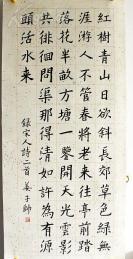 紅樹青山日欲斜長郊草色綠無
涯游人不管春將老來往亭前踏
落花半畝方塘一鑒開天光雲影
共徘徊問渠那得清如許為有源
頭活水來
錄宋人詩二首